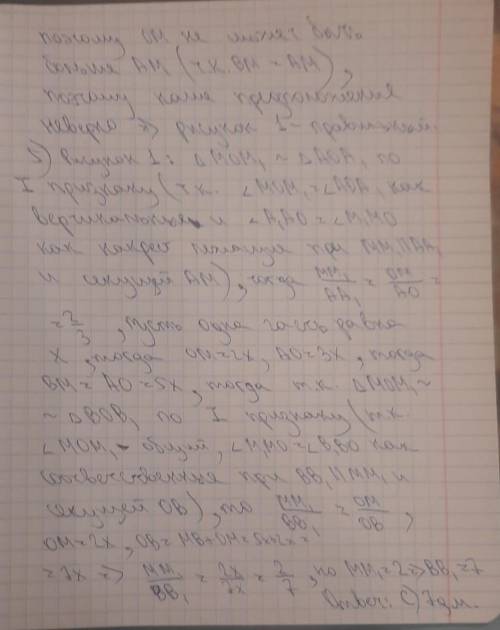 поэтому OM не может быть
больше AM (т.к. BM = AM),
поэтому наше предположение
неверно => рисунок 1 - правильный.
5) Рисунок 1: △MOM₁ ~ △AOA₁ по
I признаку (т.к. ∠MOM₁ = ∠AOA₁ как
вертикальные и ∠A₁AO = ∠M₁MO
как накрест лежащие при MM₁ || AA₁
и секущей AM), тогда MM₁/AA₁ = OM/AO =
= 2/3, пусть одна часть равна
x, тогда OM = 2x, AO = 3x, тогда
BM = AO = 5x, тогда т.к. △MOM₁ ~
~ △BOB₁ по I признаку (т.к.
∠MOM₁ - общий, ∠M₁MO = ∠B₁BO как
соответственные при BB₁ || MM₁ и
секущей OB), то MM₁/BB₁ = OM/OB,
OM = 2x, OB = MB + OM = 5x + 2x =
= 7x => MM₁/BB₁ = 2x/7x = 2/7, но MM₁ = 2 => BB₁ = 7
Ответ: C) 7 дм.